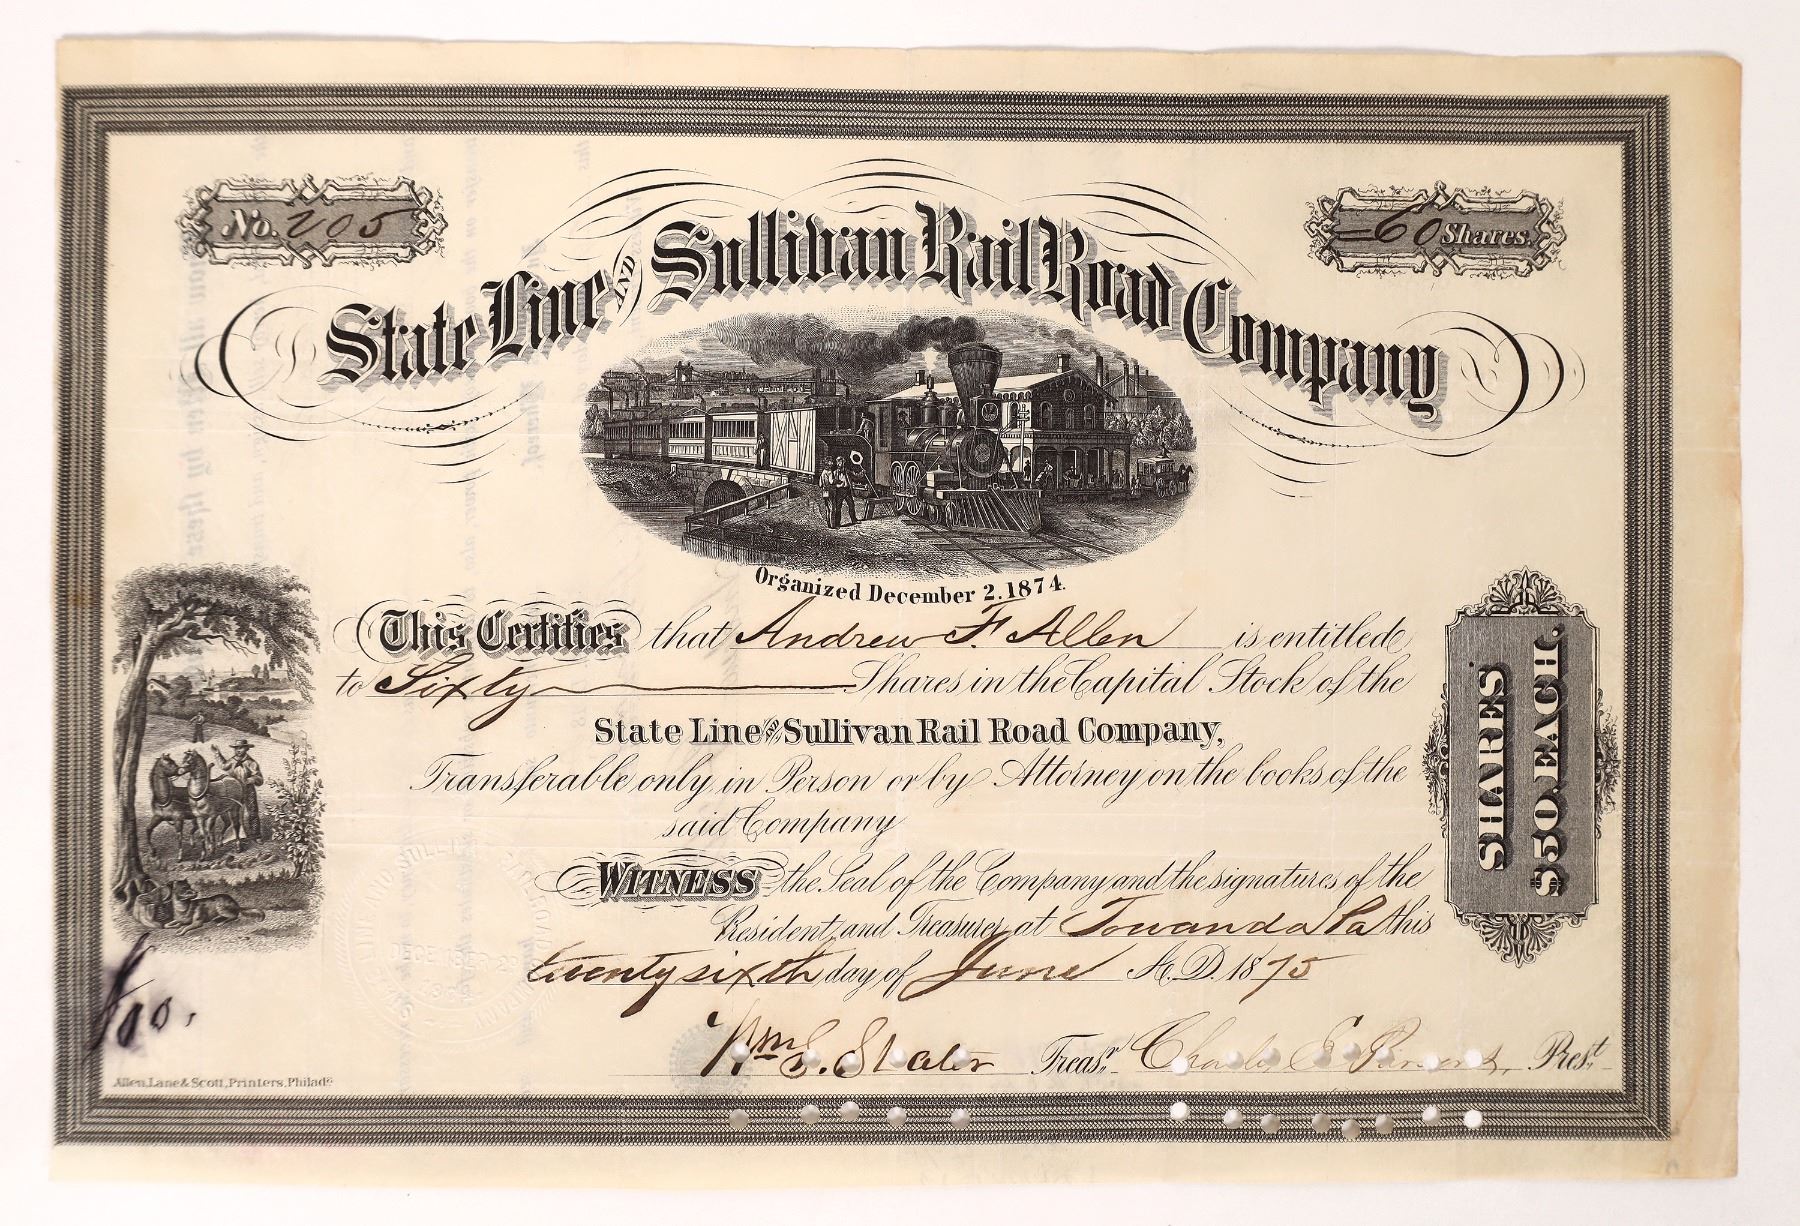 No. 205
=60 Shares.
State Line AND Sullivan Rail Road Company
Organized December 2. 1874.
This Certifies that Andrew F. Allen is entitled
to Sixty Shares in the Capital Stock of the
State Line and Sullivan Rail Road Company,
Transferable only in Person or by Attorney on the books of the
said Company
WITNESS the Seal of the Company and the signatures of the
President and Treasurer at Towanda Pa this
twenty sixth day of June A.D. 1875
Treasr.
Charles E. Prest.
SHARES
$50. EACH.
Allen, Lane & Scott, Printers, Philada.